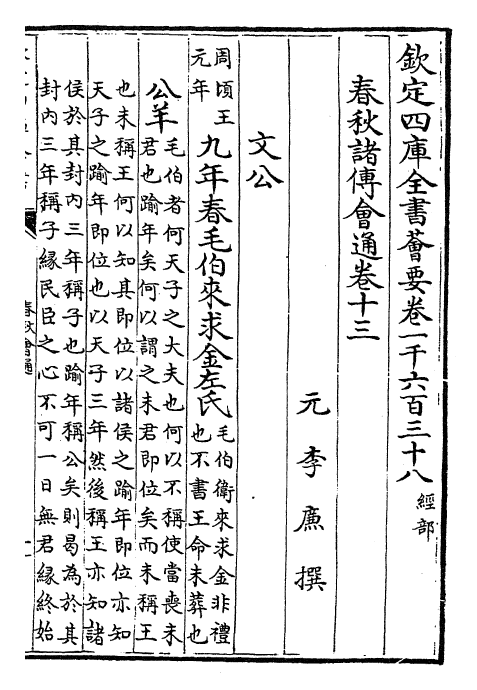 欽定四庫全書薈要卷一千六百三十八 經部
春秋諸傳會通卷十三
元 李廉 撰
文公
周頃王
元年
九年春毛伯來求金左氏
毛伯衛來求金非禮
也不書王命未葬也
公羊
毛伯者何天子之大夫也何以不稱使當喪未
君也踰年矣何以謂之未君即位矣而未稱王
也未稱王何以知其即位以諸侯之踰年即位亦知
天子之踰年即位也以天子三年然後稱王亦知諸
侯於其封內三年稱子也踰年稱公矣則曷為於其
封內三年稱子緣民臣之心不可一日無君緣終始
春秋會通